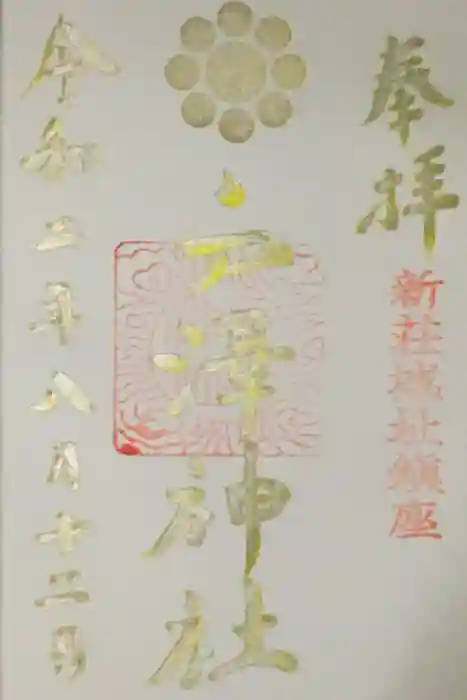 奉拝
新荘城址鎮座
戸澤神社
令和二年八月十二日